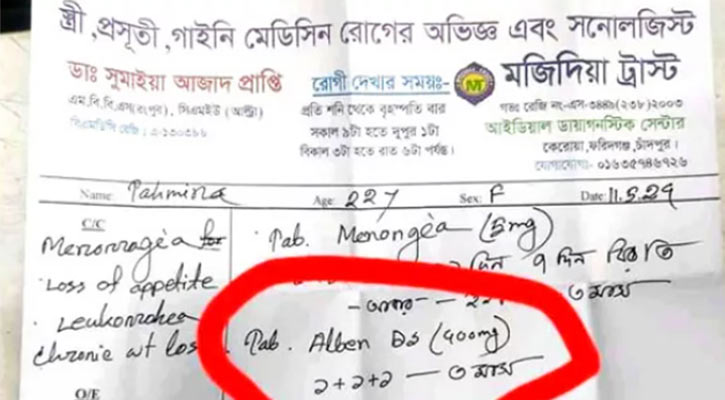 স্ত্রী, প্রসূতী, গাইনি মেডিসিন রোগের অভিজ্ঞ এবং সনোলজিস্ট
ডাঃ সুমাইয়া আজাদ প্রাপ্তি
এম.বি.বি.এস(রংপুর), সিএমইউ (আল্ট্রা)
বিএমডিসি রেজি : এ-১৩০৩৮৮
রোগী দেখার সময়ঃ-
প্রতি শনি থেকে বৃহস্পতি বার
সকাল ৯টা হতে দুপুর ১টা
বিকাল ৩টা হতে রাত ৬টা পর্যন্ত।
মজিদিয়া ট্রাস্ট
গভঃ রেজি নং-এস-৩৪৪৯(২৩৮)২০০৩
আইডিয়াল ডায়াগনস্টিক সেন্টার
কেরোয়া,ফরিদগঞ্জ,চাঁদপুর।
যোগাযোগ- ০১৬৩৫৭৪৬৭২৬
Name: Tahmina Age: 22y Sex: F Date: 11.5.24
C/C
Menorragea for
Loss of appetite
Leukorrohea
Chronic wt loss
O/E
Tab. Menongea (5mg)
দিন ৭ দিন বিরতি
৩ মাস
Tab. Alben DS (400mg)
১+১+১ — ৩ মাস